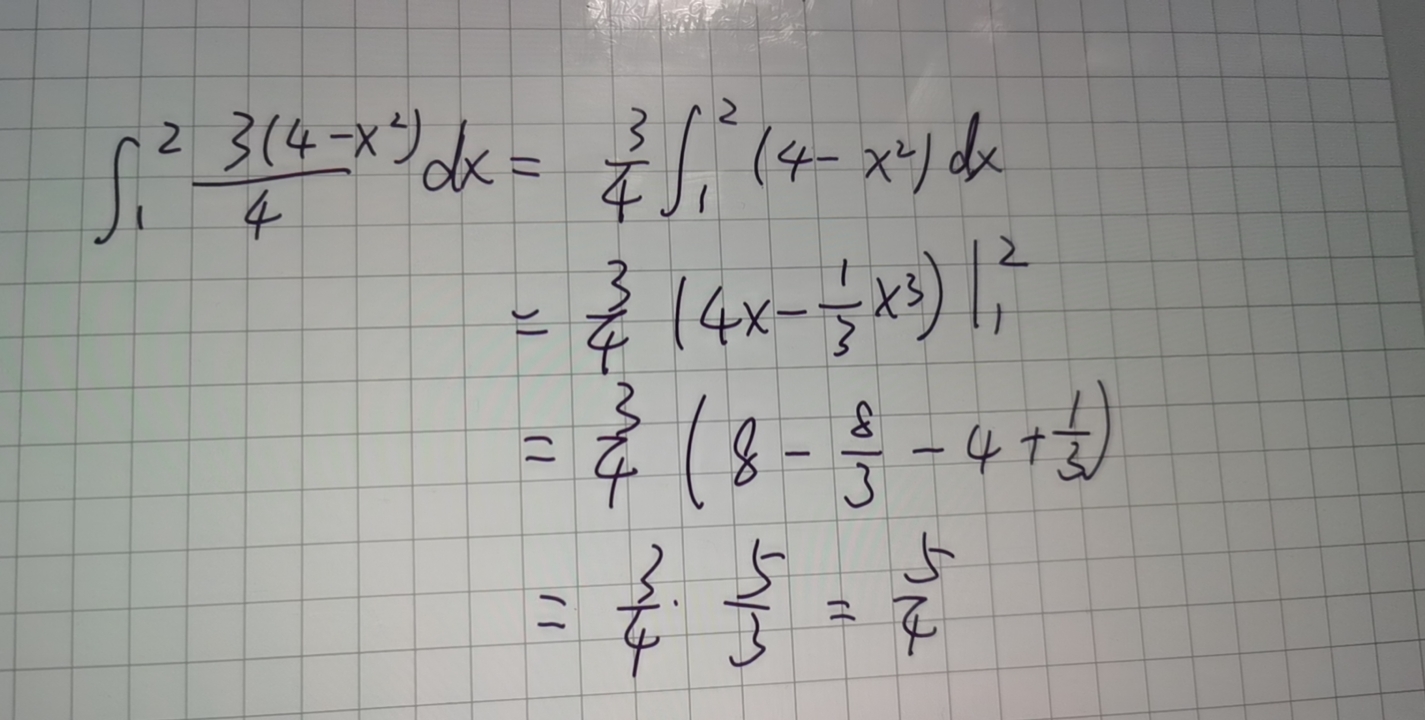 ∫₁² 3(4-x²)/4 dx = 3/4 ∫₁² (4-x²) dx
= 3/4 (4x - 1/3 x³) |₁²
= 3/4 (8 - 8/3 - 4 + 1/3)
= 3/4 · 5/3 = 5/4